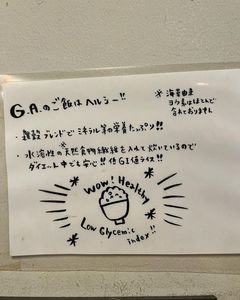 G.A.のご飯は ヘルシー!!
※海藻由来
ヨウ素はほとんど
含れておりません
・雑穀ブレンドで ミネラル等の栄養たっぷり!!
・水溶性の天然食物繊維を入れて炊いているので
ダイエット中でも安心!! 低GI値ライス!!
Wow! Healthy
Low Glycemic
index!!